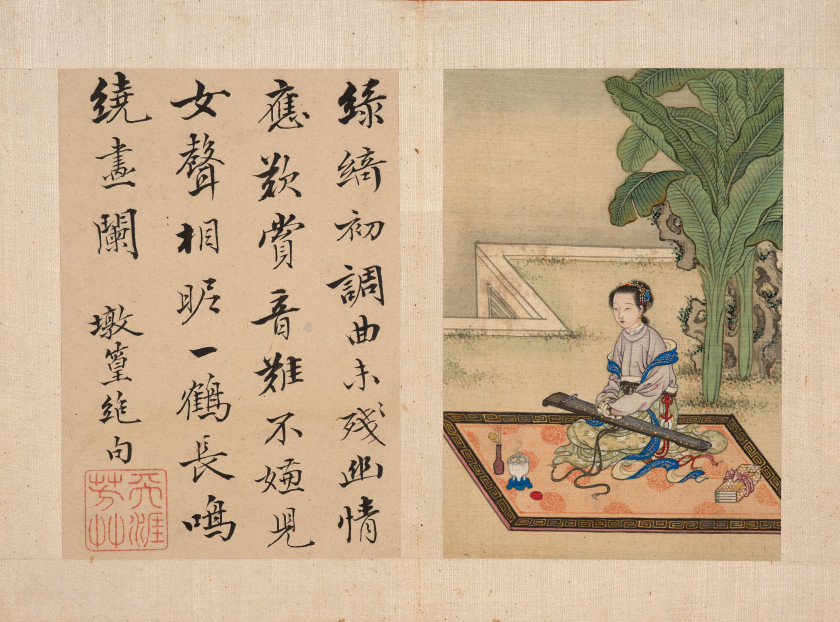 綠綺初調曲未殘幽情
應歎賞音難不嫌兒
女聲相昵一鶴長鳴
繞畫闌 墩篁絶句
天涯芳艸